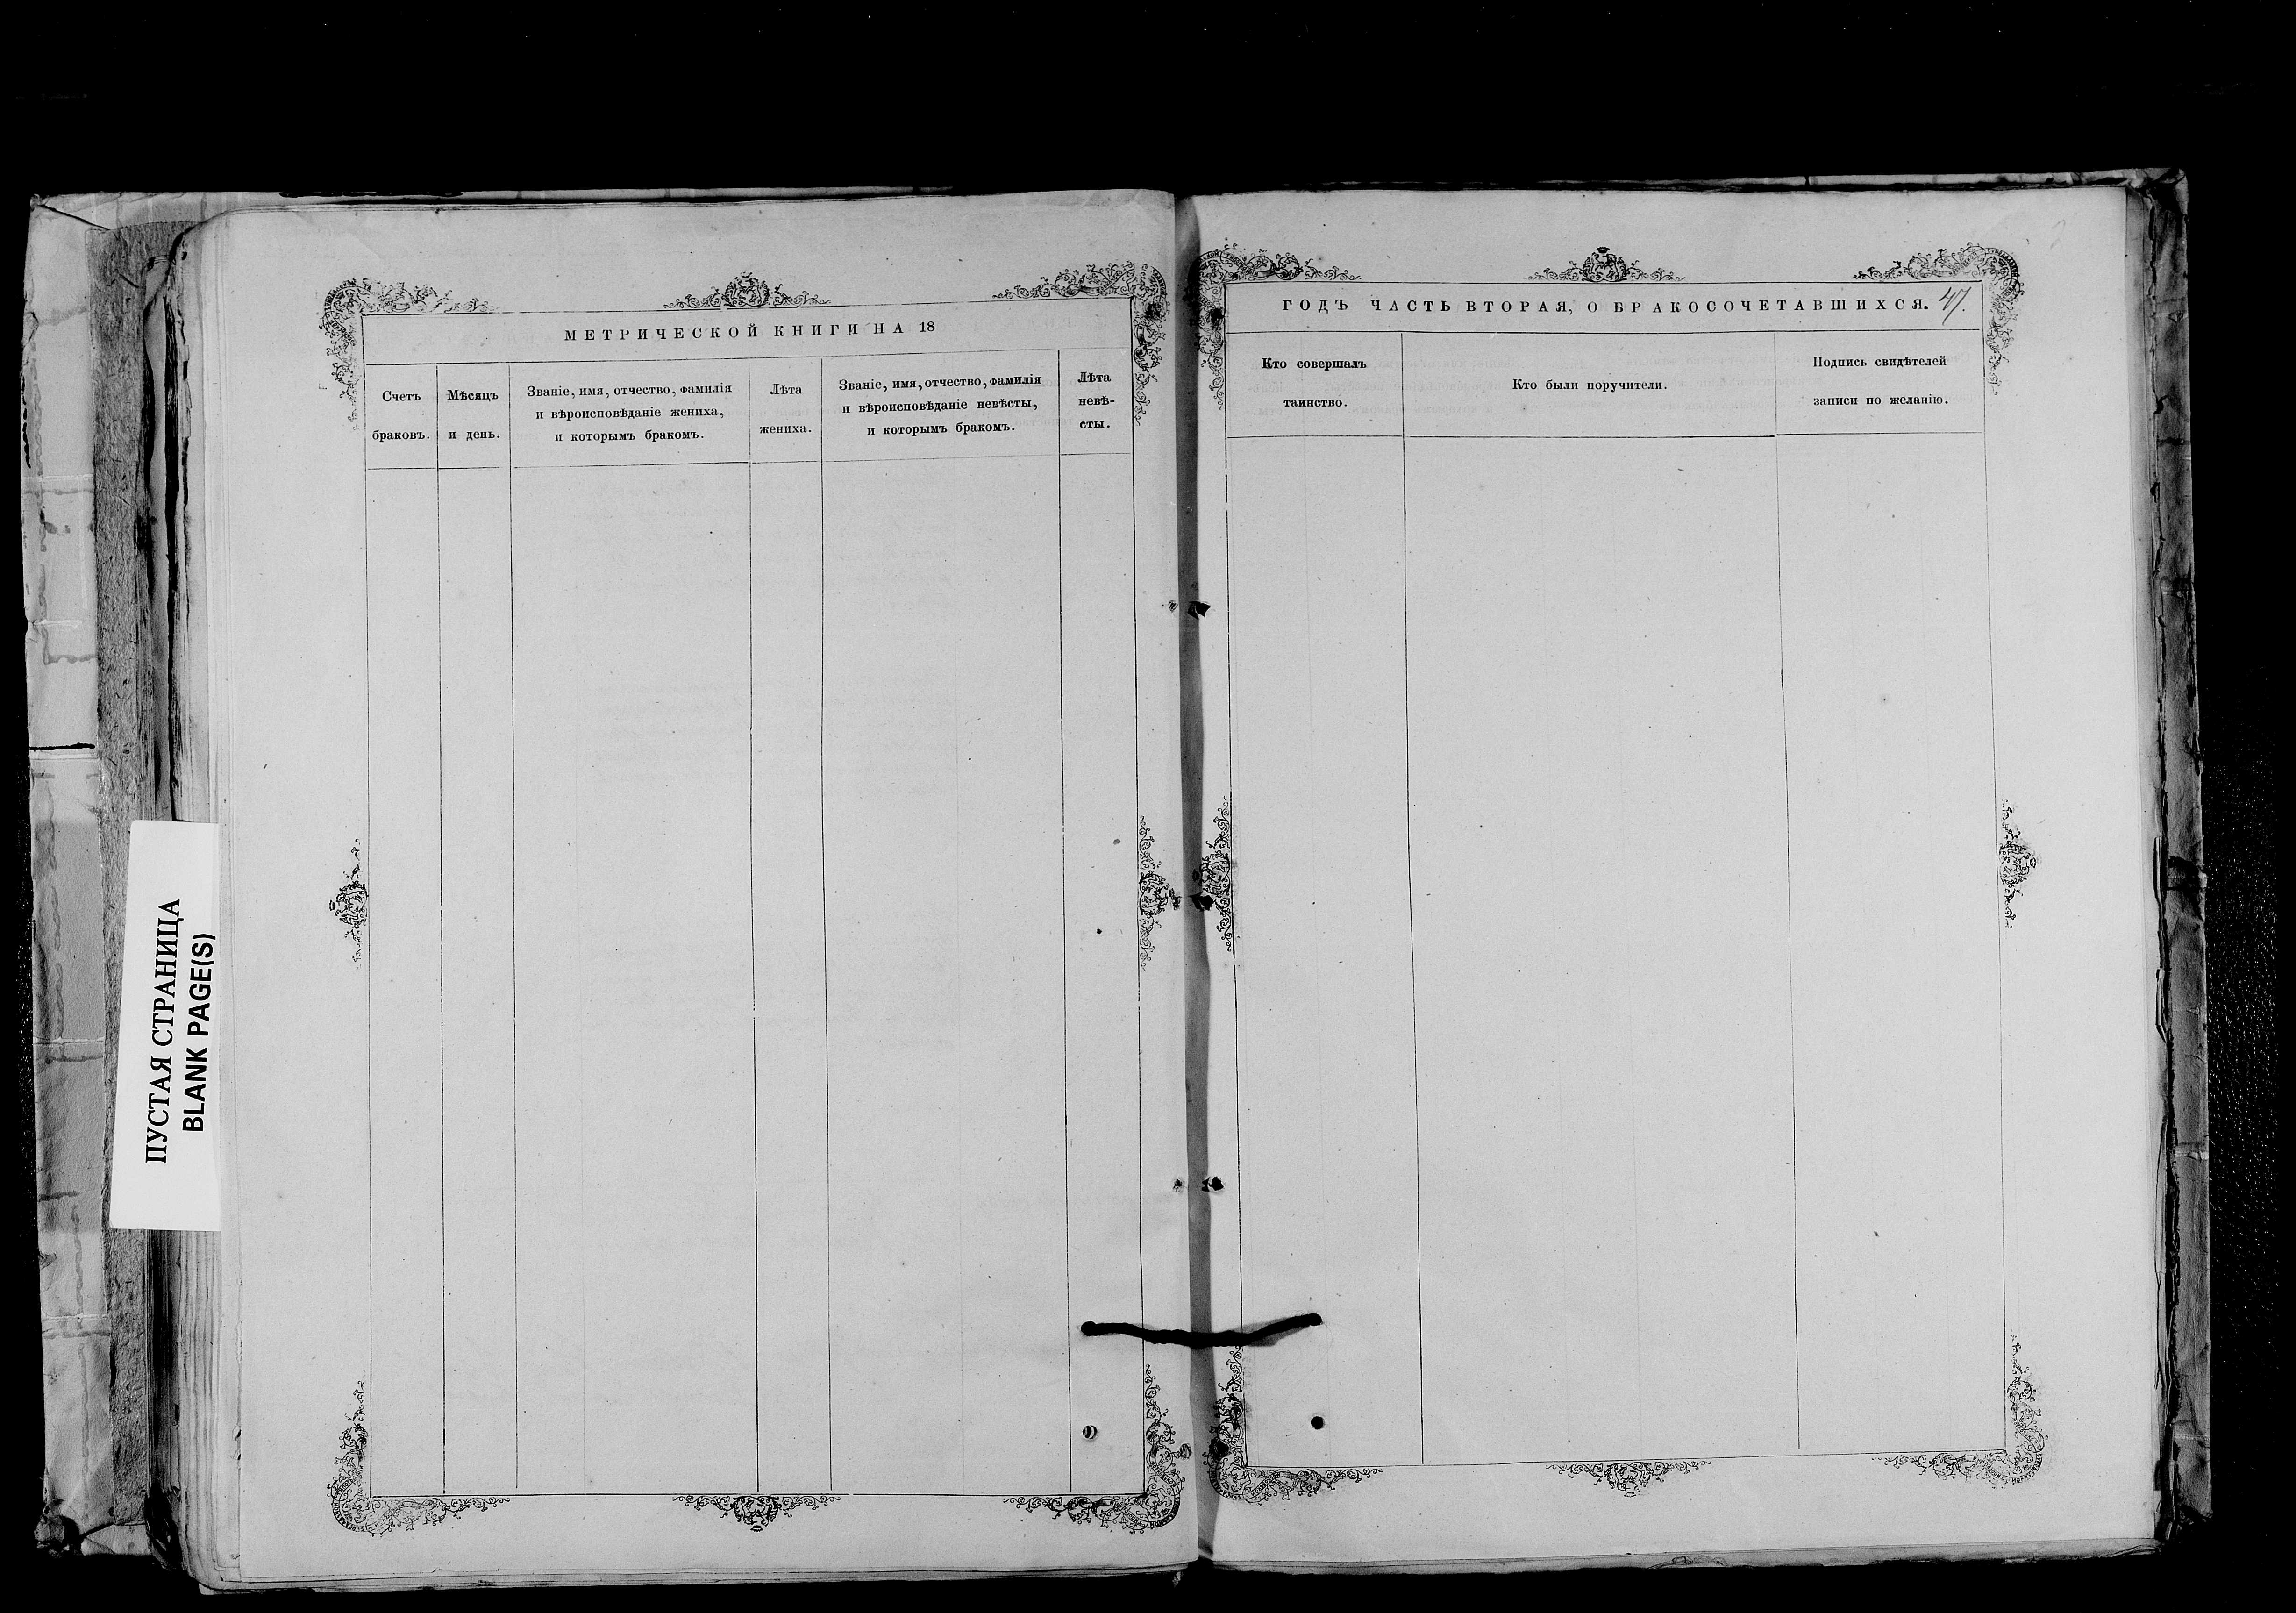 МЕТРИЧЕСКОЙ КНИГИ НА 18
Счетъ
браковъ.
Мѣсяцъ
и день.
Званіе, имя, отчество, фамилія
и вѣроисповѣданіе жениха,
и которымъ бракомъ.
Лѣта
жениха.
Званіе, имя, отчество, фамилія
и вѣроисповѣданіе невѣсты,
и которымъ бракомъ.
Лѣта
невѣ-
сты.
ГОДЪ ЧАСТЬ ВТОРАЯ, О БРАКОСОЧЕТАВШИХСЯ. 47.
Кто совершалъ
таинство.
Кто были поручители.
Подпись свидѣтелей
записи по желанію.
ПУСТАЯ СТРАНИЦА
BLANK PAGE(S)